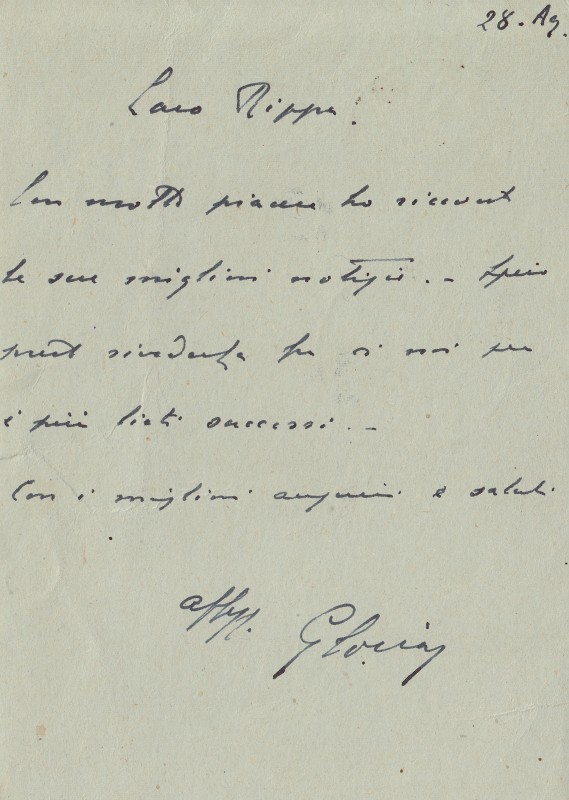 28. Ag.
Caro Rippa.
Con molto piacere ho ricevut
le sue migliori notizie. - Spero
prest rivederla fra di noi per
i più lieti successi. -
Con i migliori auguri e saluti
aff.